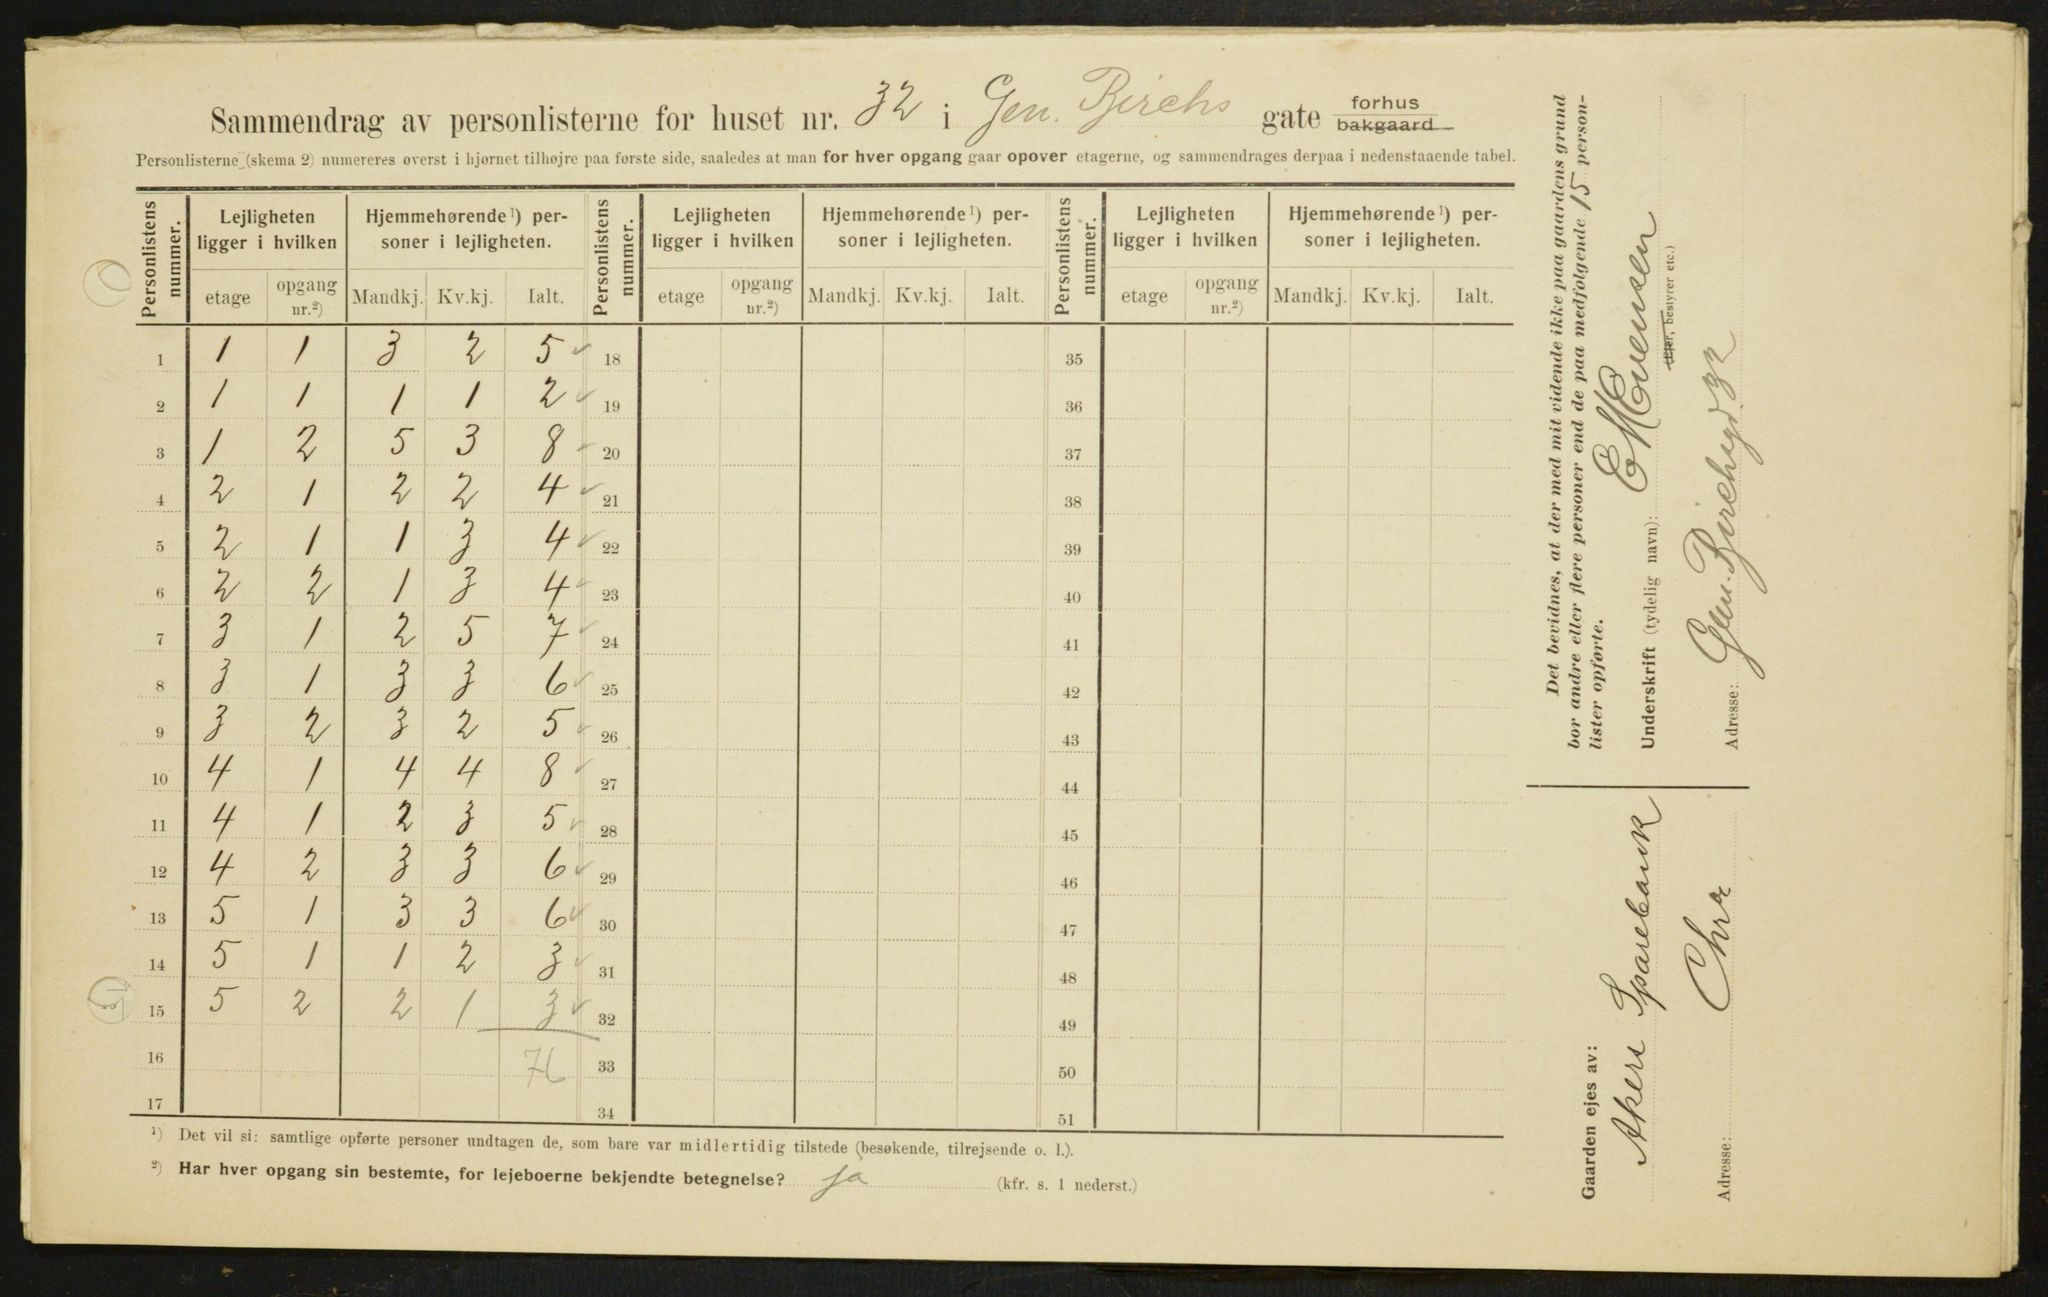 Sammendrag av personlisterne for huset nr. 32 i Gen. Birchs gate forhus bakgaard
Personlisterne (skema 2) numereres øverst i hjørnet tilhøjre paa første side, saaledes at man for hver opgang gaar opover etagerne, og sammendrages derpaa i nedenstaaende tabel.
Personlistens nummer. Lejligheten ligger i hvilken Hjemmehørende ¹) personer i lejligheten. Personlistens nummer. Lejligheten ligger i hvilken Hjemmehørende ¹) personer i lejligheten. Personlistens nummer. Lejligheten ligger i hvilken Hjemmehørende ¹) personer i lejligheten.
etage opgang nr.²) Mandkj. Kv.kj. Ialt. etage opgang nr.²) Mandkj. Kv.kj. Ialt. etage opgang nr.²) Mandkj. Kv.kj. Ialt.
1 1 1 3 2 5 18 35
2 1 1 1 1 2 19 36
3 1 2 5 3 8 20 37
4 2 1 2 2 4 21 38
5 2 1 1 3 4 22 39
6 2 2 1 3 4 23 40
7 3 1 2 5 7 24 41
8 3 1 3 3 6 25 42
9 3 2 3 2 5 26 43
10 4 1 4 4 8 27 44
11 4 1 2 3 5 28 45
12 4 2 3 3 6 29 46
13 5 1 3 3 6 30 47
14 5 1 1 2 3 31 48
15 5 2 2 1 3 32 49
16 76 33 50
17 34 51
¹) Det vil si: samtlige opførte personer undtagen de, som bare var midlertidig tilstede (besøkende, tilrejsende o. l.).
²) Har hver opgang sin bestemte, for lejeboerne bekjendte betegnelse? ja (kfr. s. 1 nederst.)
Det bevidnes, at der med mit vidende ikke paa gaardens grund
bor andre eller flere personer end de paa medfølgende 15 person-
lister opførte.
Underskrift (tydelig navn): E M Evensen
(Ejer, bestyrer etc.)
Adresse: Gen. Birchsgd 32
Gaarden ejes av:
Akers Sparebank
Adresse: Chra